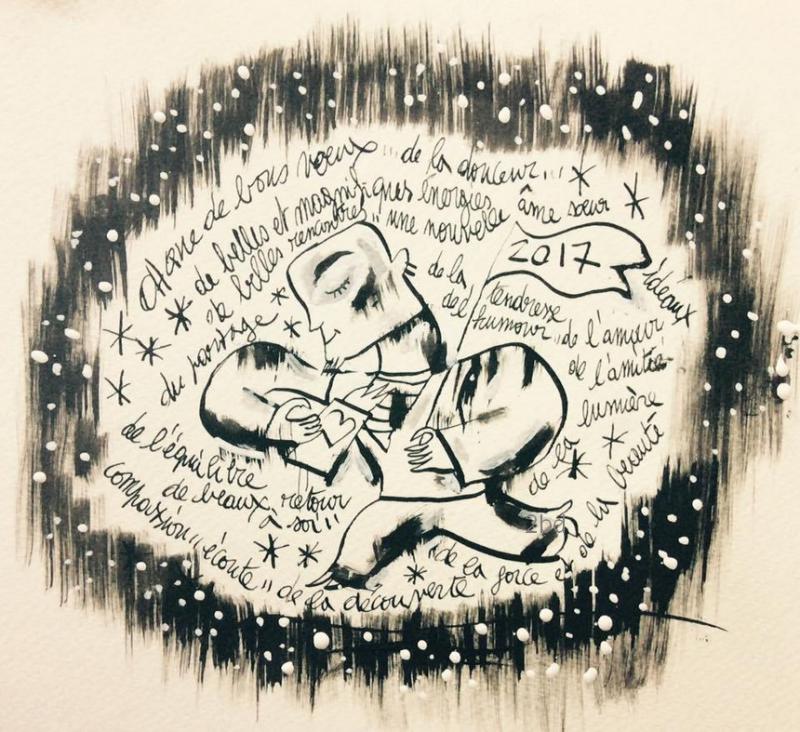 de bons vœux ... de la douceur...
de belles et magnifiques énergies
de belles rencontres " une nouvelle âme sœur
du partage
2017
de la tendresse
del humour "
idéaux
de l'amour
de l'amitié
de la lumière
de la beauté
de l'équilibre
de beaux retour
à soi "
compassion " écoute " de la découverte
" de la force et